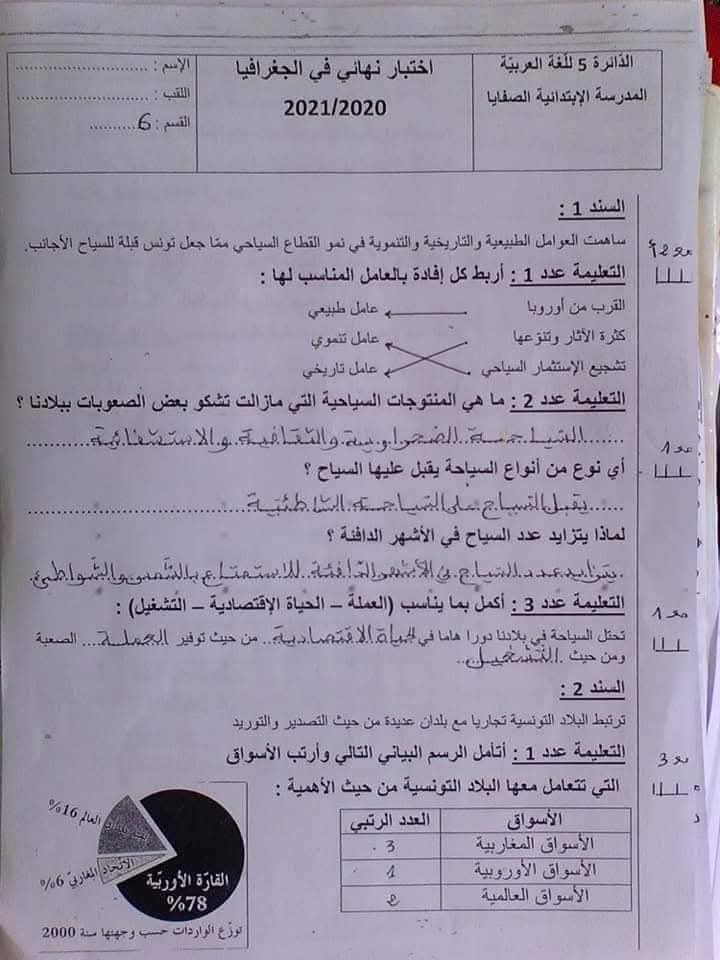 الدائرة 5 للّغة العربيّة
المدرسة الإبتدائية الصفايا
اختبار نهائي في الجغرافيا
2021/2020
الإسم : ........................
اللقب : ........................
القسم : 6...........
السند 1 :
ساهمت العوامل الطبيعية والتاريخية والتنموية في نمو القطاع السياحي ممّا جعل تونس قبلة للسياح الأجانب.
التعليمة عدد 1 : أربط كل إفادة بالعامل المناسب لها :
القرب من أوروبا عامل طبيعي
كثرة الأثار وتنوّعها عامل تنموي
تشجيع الإستثمار السياحي عامل تاريخي
التعليمة عدد 2 : ما هي المنتوجات السياحية التي مازالت تشكو بعض الصعوبات ببلادنا ؟
السّياحة الصّحراوية والثّقافية والاستشفائية
أي نوع من أنواع السياحة يقبل عليها السياح ؟
يقبل السيّاح على السّياحة الشّاطئيّة
لماذا يتزايد عدد السياح في الأشهر الدافئة ؟
يتزايد عدد السيّاح في الأشهر الدّافئة للاستمتاع بالشّمس والشّواطئ.
التعليمة عدد 3 : أكمل بما يناسب (العملة – الحياة الإقتصادية – التشغيل) :
تحتل السياحة في بلادنا دورا هاما في الحياة الاقتصادية.. من حيث توفير العملة.... الصعبة
ومن حيث التشغيل..
السند 2 :
ترتبط البلاد التونسية تجاريا مع بلدان عديدة من حيث التصدير والتوريد
التعليمة عدد 1 : أتأمل الرسم البياني التالي وأرتب الأسواق
التي تتعامل معها البلاد التونسية من حيث الأهمية :
الأسواق العدد الرتبي
الأسواق المغاربية 3
الأسواق الأوروبية 1
الأسواق العالمية 2
بلدان العالم 16%
الاتّحاد المغاربيّ 6%
القارّة الأوربيّة
78%
توزّع الواردات حسب وجهتها سنة 2000
مع 2
مع 1
مع 1
مع 3